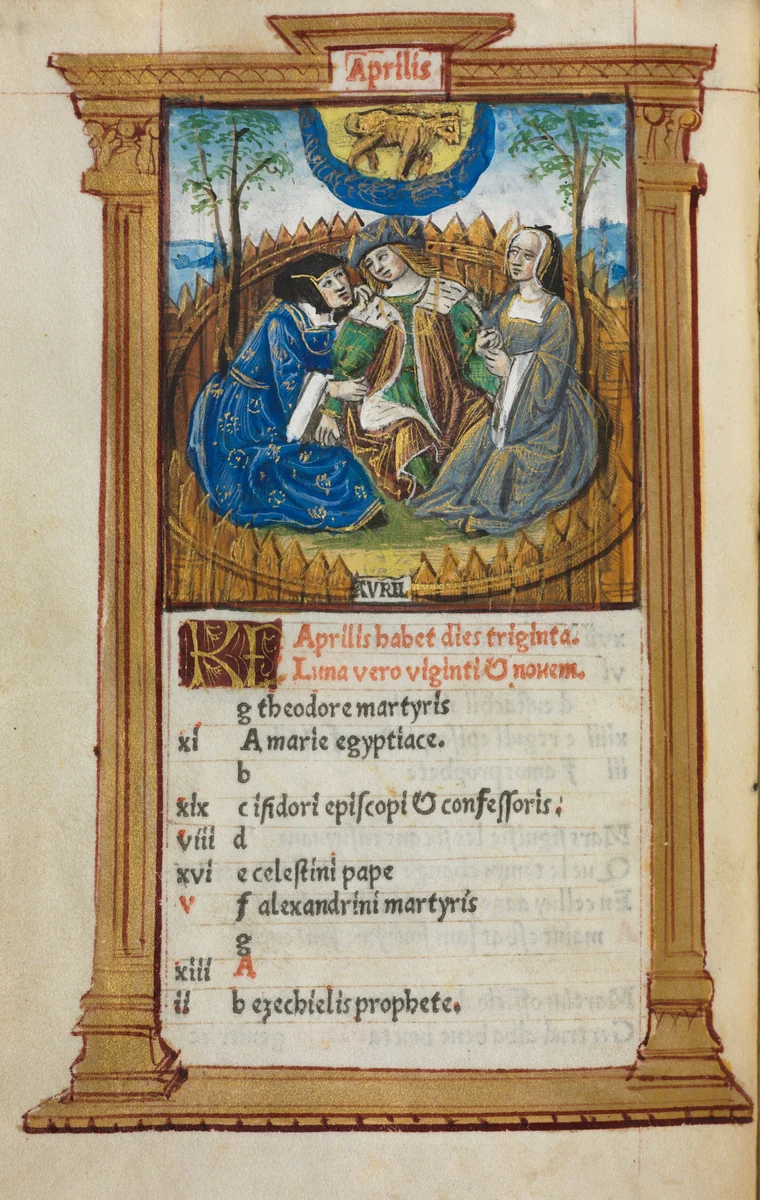 Aprilis
AVRIL
KL Aprilis habet dies triginta.
Luna vero viginti & novem.
g theodore martyris
xi A marie egyptiace.
b
xix c iſidori epiſcopi & confeſſoris:
viii d
xvi e celeſtini pape
v f alexandrini martyris
g
xiii A
ii b ezechielis prophete.